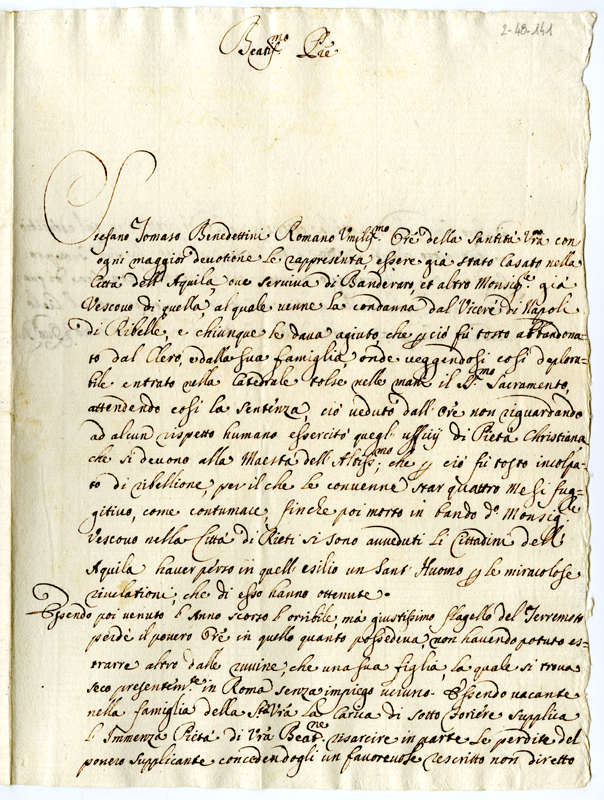 2-48-141
Beatis.mo Pre
Stefano Tomaso Benedettini Romano Umilis.mo Ore della Santità Vra con
ogni maggior devotione le rappresenta, essere già stato Casato nella
Città dell'Aquila, ove serviva di Banderaro, et altro Monsig.re già
Vescovo di quella, al quale venne la condanna dal Vicerè di Napoli
di Ribelle, e chiunque le dava agiuto, che p ciò fù tosto abbandona=
to dal Clero, e dalla sua famiglia, onde veggendosi così deplora=
bile entrato nella Catedrale tolse nelle mani il S.mo Sacramento,
attendendo così la sentenza, ciò veduto dall'Ore non riguardando
ad alcun rispetto humano essercitò quegl'ufficij di Pietà Christiana
che si devono alla Maestà dell'Altiss.mo, che p ciò fù tosto incolpa=
to di ribellione, per il che le convenne star quattro Mesi fug=
gitivo, come contumace, finche poi morto in bando d.o Monsig.re
Vescovo nella Città di Rieti si sono avveduti li Cittadini dell'
Aquila haver perso in quell'esilio un Sant'Huomo p le miracolose
rivelationi, che di esso hanno ottenute.
Essendo poi venuto l'Anno scorso l'orribile, mà giustissimo flagello del Terremoto
perdè il povero Ore in quello quanto possedeva, non havendo potuto es=
trarre altro dalle ruvine, che una sua figlia, la quale si trova
seco presentem.te in Roma senza impiego veruno. Essendo vacante
nella famiglia della S.tà Vrà la Carica di sotto foriere supplica
l'Immenza Pietà di Vrà Beat.ne risarcire in parte le perdite del
povero supplicante concedendogli un favorevole rescritto non diretto